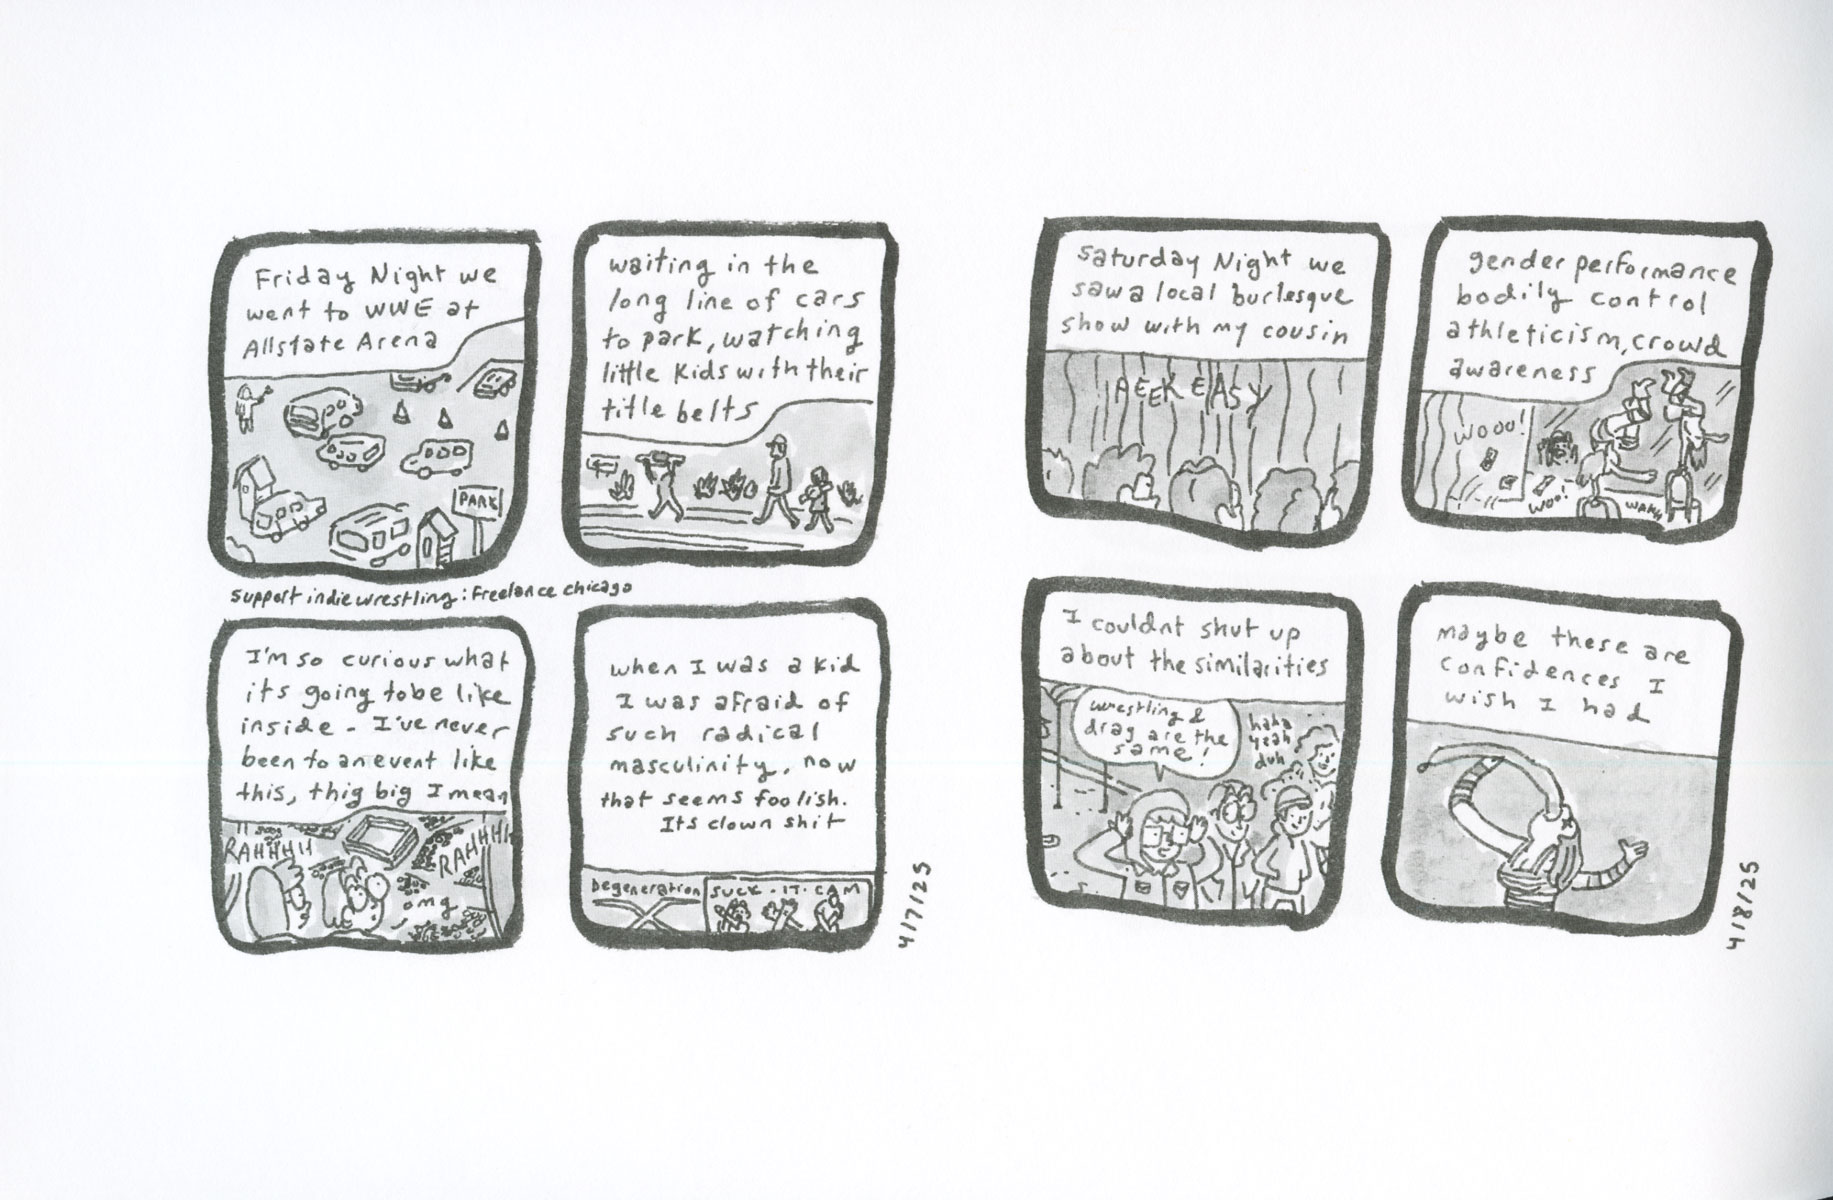 Friday Night we
went to WWE at
Allstate Arena
PARK
waiting in the
long line of cars
to park, watching
little kids with their
title belts
support indie wrestling: Freelance chicago
I'm so curious what
its going to be like
inside - I've never
been to an event like
this, thig big I mean
RAHHHH
RAHHHH
omg
when I was a kid
I was afraid of
such radical
masculinity. now
that seems foolish.
Its clown shit
Degeneration
X
SUCK-IT-CAM
4/7/25
Saturday Night we
saw a local burlesque
show with my cousin
PEEK EASY
gender performance
bodily control
athleticism, crowd
awareness
WOOO!
WOO!
WAHH
I couldnt shut up
about the similarities
wrestling &
drag are the
same!
haha
yeah
duh
maybe these are
confidences I
wish I had
4/8/25